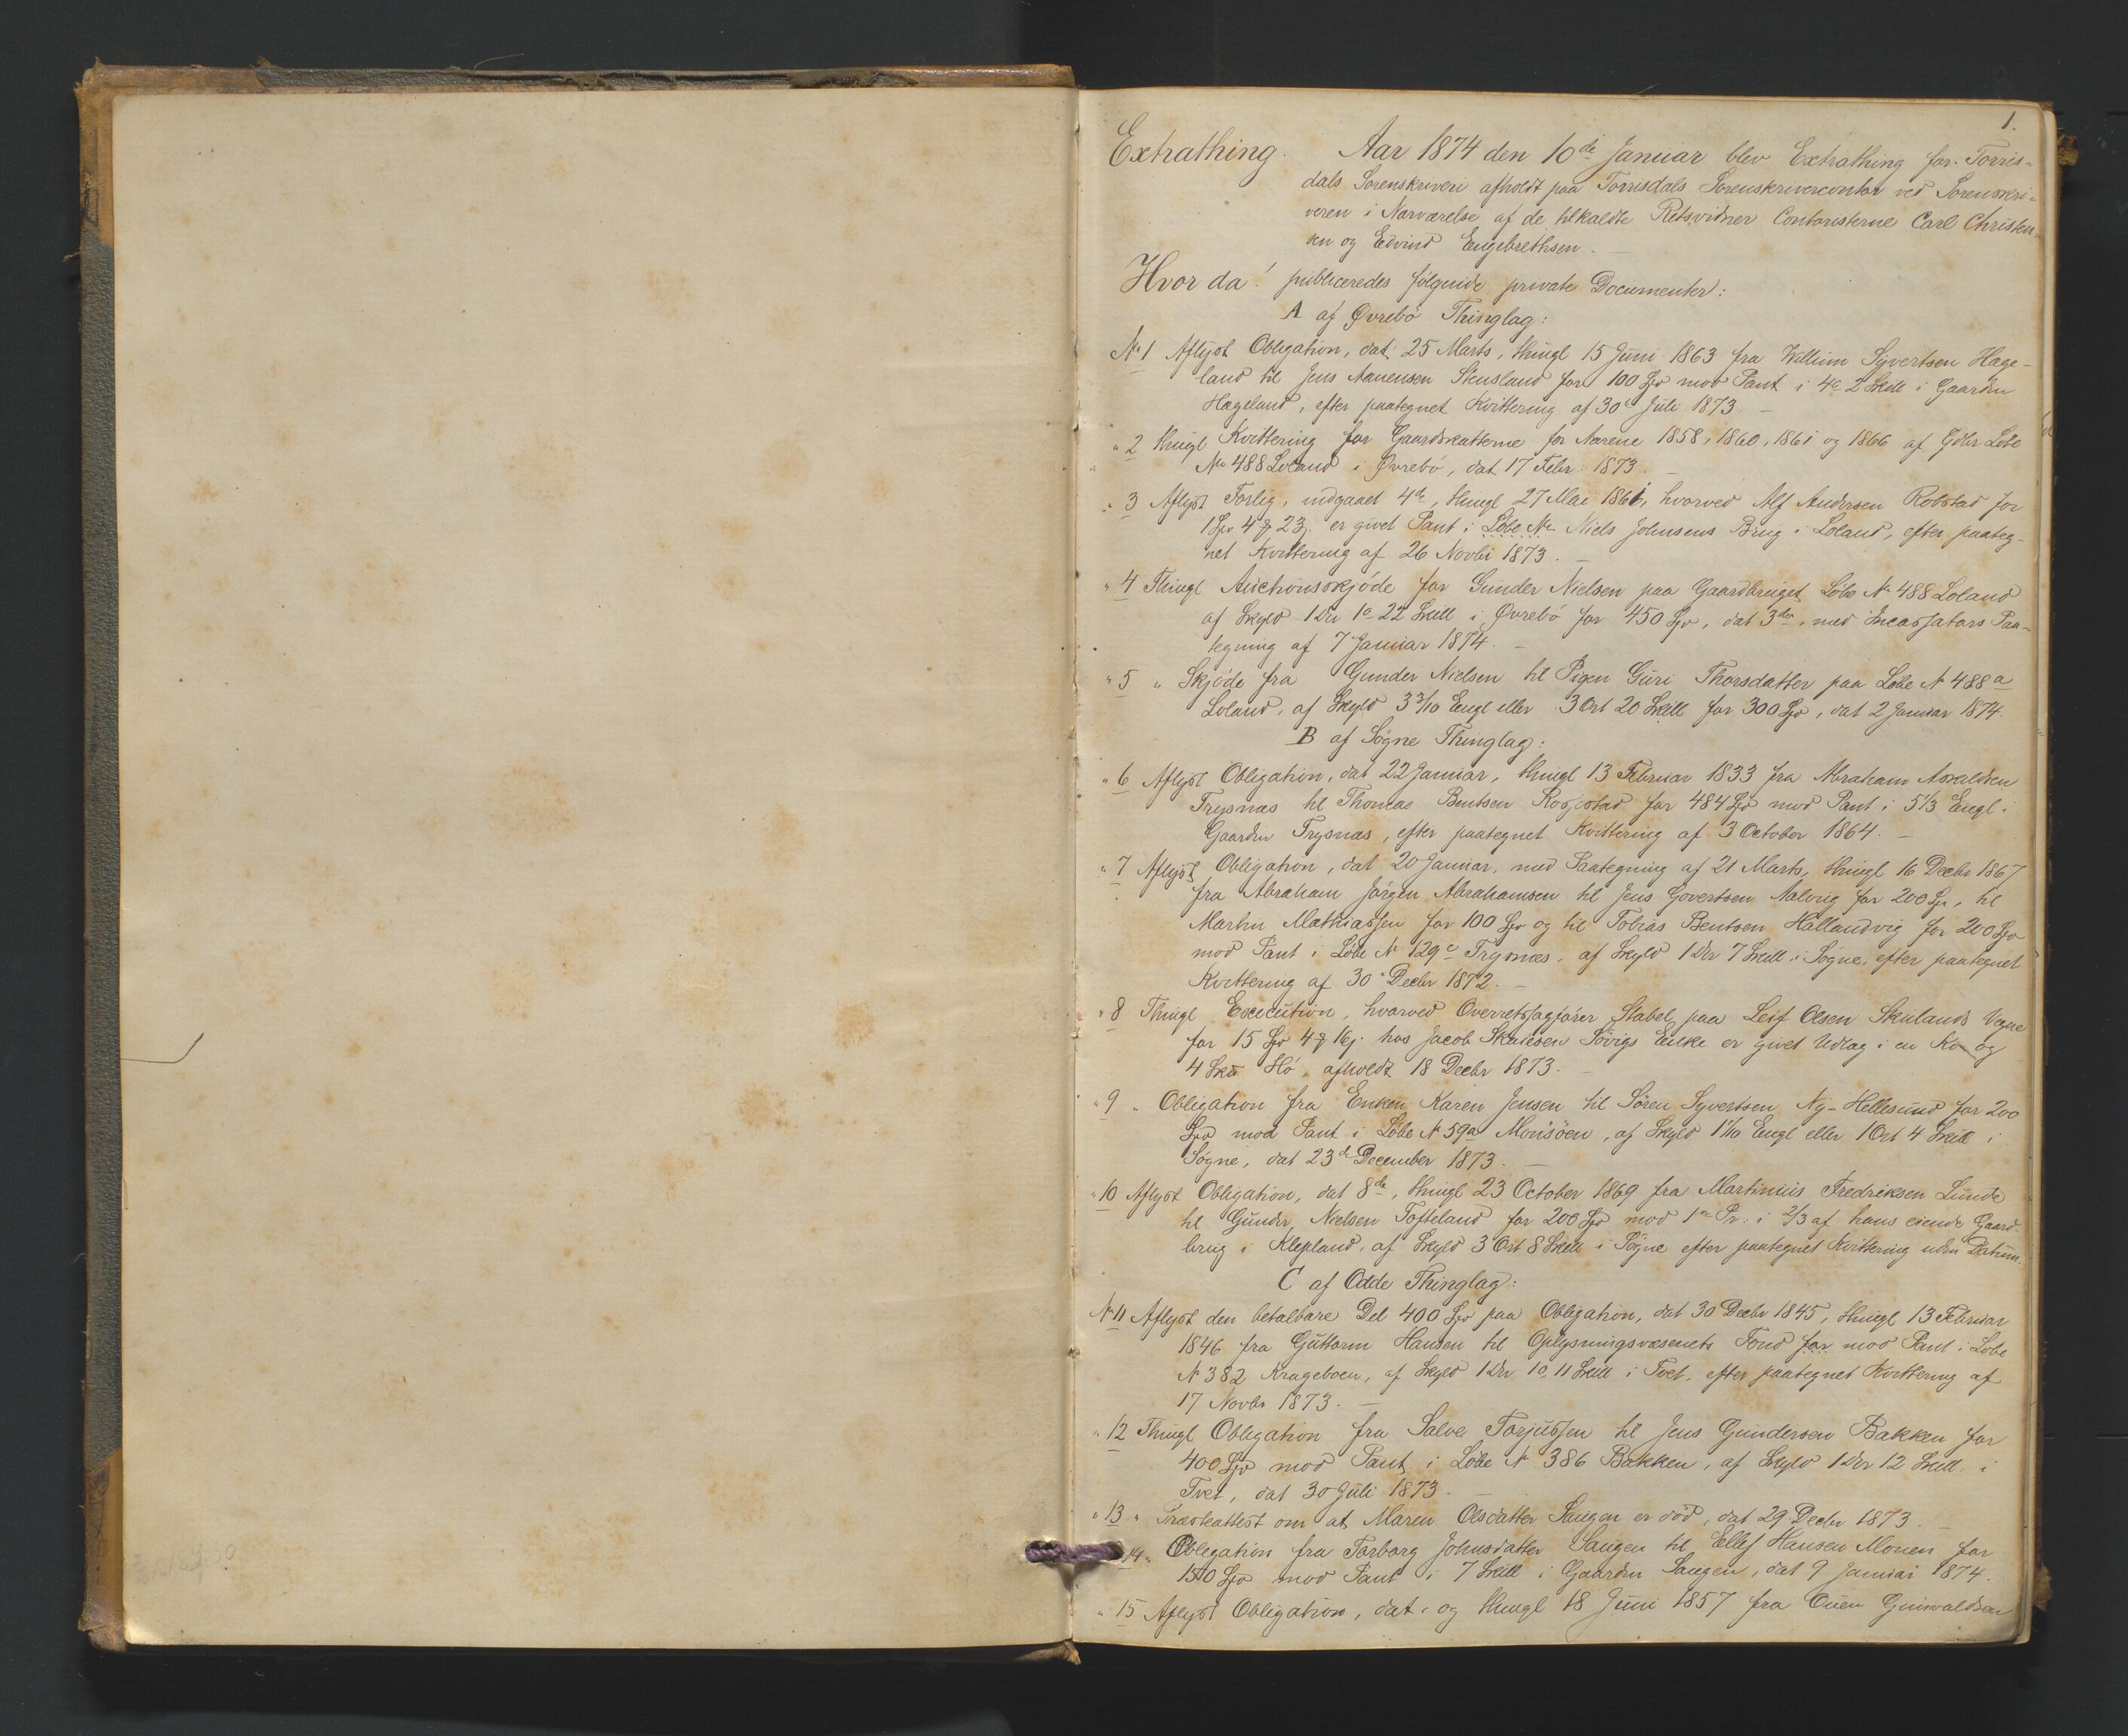 1.
Extrathing. Aar 1874 den 10de Januar blev Extrathing for Torris-
dals Sorenskriveri afholdt paa Torrisdals Sorenskrivercontor ved Sorenskri-
veren i Nærværelse af de tilkaldte Retsvidner Contoristerne Carl Christen-
sen og Edvind Engebrethsen. —
Hvor da! publiceredes følgende private Documenter:
A af Øvrebø Thinglag:
No 1 Aflyst Obligation, dat. 25 Marts, thingl 15 Juni 1863 fra Willum Syvertsen Hage-
land til Jens Aanensen Stensland for 100 Spd mod Pant i 4o 2 Skill i Gaarden
Hageland, efter paategnet Kvittering af 30 Juli 1873. —
" 2 Thingl Kvittering for Gaardskatterne for Aarene 1858, 1860, 1861 og 1866 af Gdbr Løbe
No 488 Loland i Øvrebø, dat 17 Febr 1873. —
" 3 Aflyst Forlig, indgaaet 4de, thingl 27 Mai 1861, hvorved Alf Andersen Robstad for
1 Spd 4 # 23 s. er givet Pant i Løbe No Niels Johnsens Brug i Loland, efter paateg-
net Kvittering af 26 Novbr 1873. —
" 4 Thingl Auctionsskjøde for Gunder Nielsen paa Gaardbruget Løbe No 488 Loland
af Skyld 1 Dlr 1o 22 Skill i Øvrebø for 450 Spd, dat 3die, med Incassators Paa-
tegning af 7 Januar 1874. —
" 5 " Skjøde fra Gunder Nielsen til Pigen Guri Thorsdatter paa Løbe No 488 a
Loland, af Skyld 3 3/10 Engl eller 3 Ort 20 Skill for 300 Spd, dat 2 Januar 1874.
B af Søgne Thinglag:
" 6 Aflyst Obligation, dat 22 Januar, thingl 13 Februar 1833 fra Abraham Aanaldsen
Trysnæs til Thomas Bentsen Rosseland for 484 Spd mod Pant i 5 1/3 Engl i
Gaarden Trysnæs, efter paategnet Kvittering af 3 October 1864. —
" 7 Aflyst Obligation, dat 20 Januar, med Paategning af 21 Marts, thingl 16 Decbr 1867
fra Abraham Jørgen Abrahamsen til Jens Govertsen Aalvig for 200 Spd, til
Martin Mathiassen for 100 Spd og til Tobias Bentsen Hallandvig for 200 Spd
mod Pant i Løbe No 129 c Trysnæs, af Skyld 1 Dlr 7 Skill i Søgne, efter paategnet
Kvittering af 30 Decbr 1872. —
" 8 Thingl Execution, hvorved Overretssagfører Stabel paa Leif Olsen Skulands Vegne
for 15 Spd 4 # 16 s. hos Jacob Skaiesen Søvigs Enke er givet Udlag i en Ko og
4 Skd Hø, afholdt 18 Decbr 1873. —
" 9 " Obligation fra Enken Karen Jensen til Søren Syvertsen Ny-Hellesund for 200
Spd mod Pant i Løbe No 59 a Monsøen, af Skyld 1 1/10 Engl eller 1 Ort 4 Skill i
Søgne, dat 23de December 1873. —
" 10 Aflyst Obligation, dat 8de, thingl 23 October 1869 fra Martinius Fredriksen Lunde
til Gunder Nielsen Tofteland for 200 Spd mod 1ste Pr. i 2/3 af hans eiende Gaard-
brug i Klepland, af Skyld 3 Ort 8 Skill i Søgne efter paategnet Kvittering uden Datum.
C af Odde Thinglag:
No 11 Aflyst den betalbare Del 400 Spd paa Obligation, dat 30 Decbr 1845, thingl 13 Februar
1846 fra Guttorm Hansen til Oplysningsvæsenets Fond for mod Pant i Løbe
No 382 Krageboen, af Skyld 1 Dlr 1o 11 Skill i Tvet, efter paategnet Kvittering af
17 Novbr 1873. —
" 12 Thingl Obligation fra Salve Torjussen til Jens Gundersen Bakken for
400 Spd mod Pant i Løbe No 386 Bakken, af Skyld 1 Dlr 12 Skill i
Tvet, dat 30 Juli 1873. —
" 13 " Præsteattest om at Maren Olsdatter Saugen er død, dat 29 Decbr 1873. —
14 " Obligation fra Torborg Johnsdatter Saugen til Ellef Hansen Monen for
150 Spd mod Pant i 7 Skill i Gaarden Saugen, dat 9 Januar 1874.
" 15 Aflyst Obligation, dat. og thingl 18 Juni 1857 fra Ouen Gunvaldsen